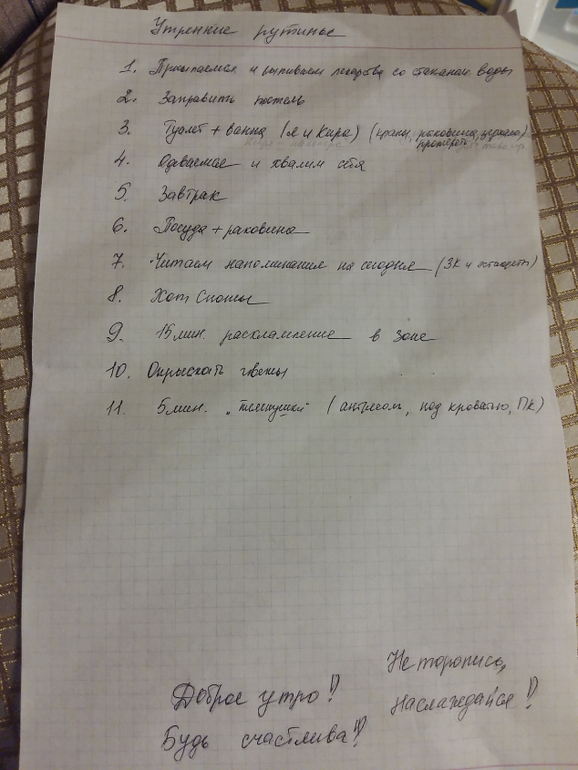 Утренние рутины
1. Просыпаемся и выпиваем лекарства со стаканом воды
2. Заправить постель
3. Туалет + ванна (я и Кира) (краны, раковина, зеркала)
протереть
4. Одеваемся и хвалим себя
5. Завтрак
6. Посуда + раковина
7. Читаем напоминания на сегодня (ЗК и)
8. Хот Споты
9. 15 мин. расхламление в зоне
10. Опрыскать цветы
11. 5 мин. (антресоль, под кроватью, ПК)
Не торопись,
наслаждайся!!
Доброе утро!!
Будь счастлива!!!